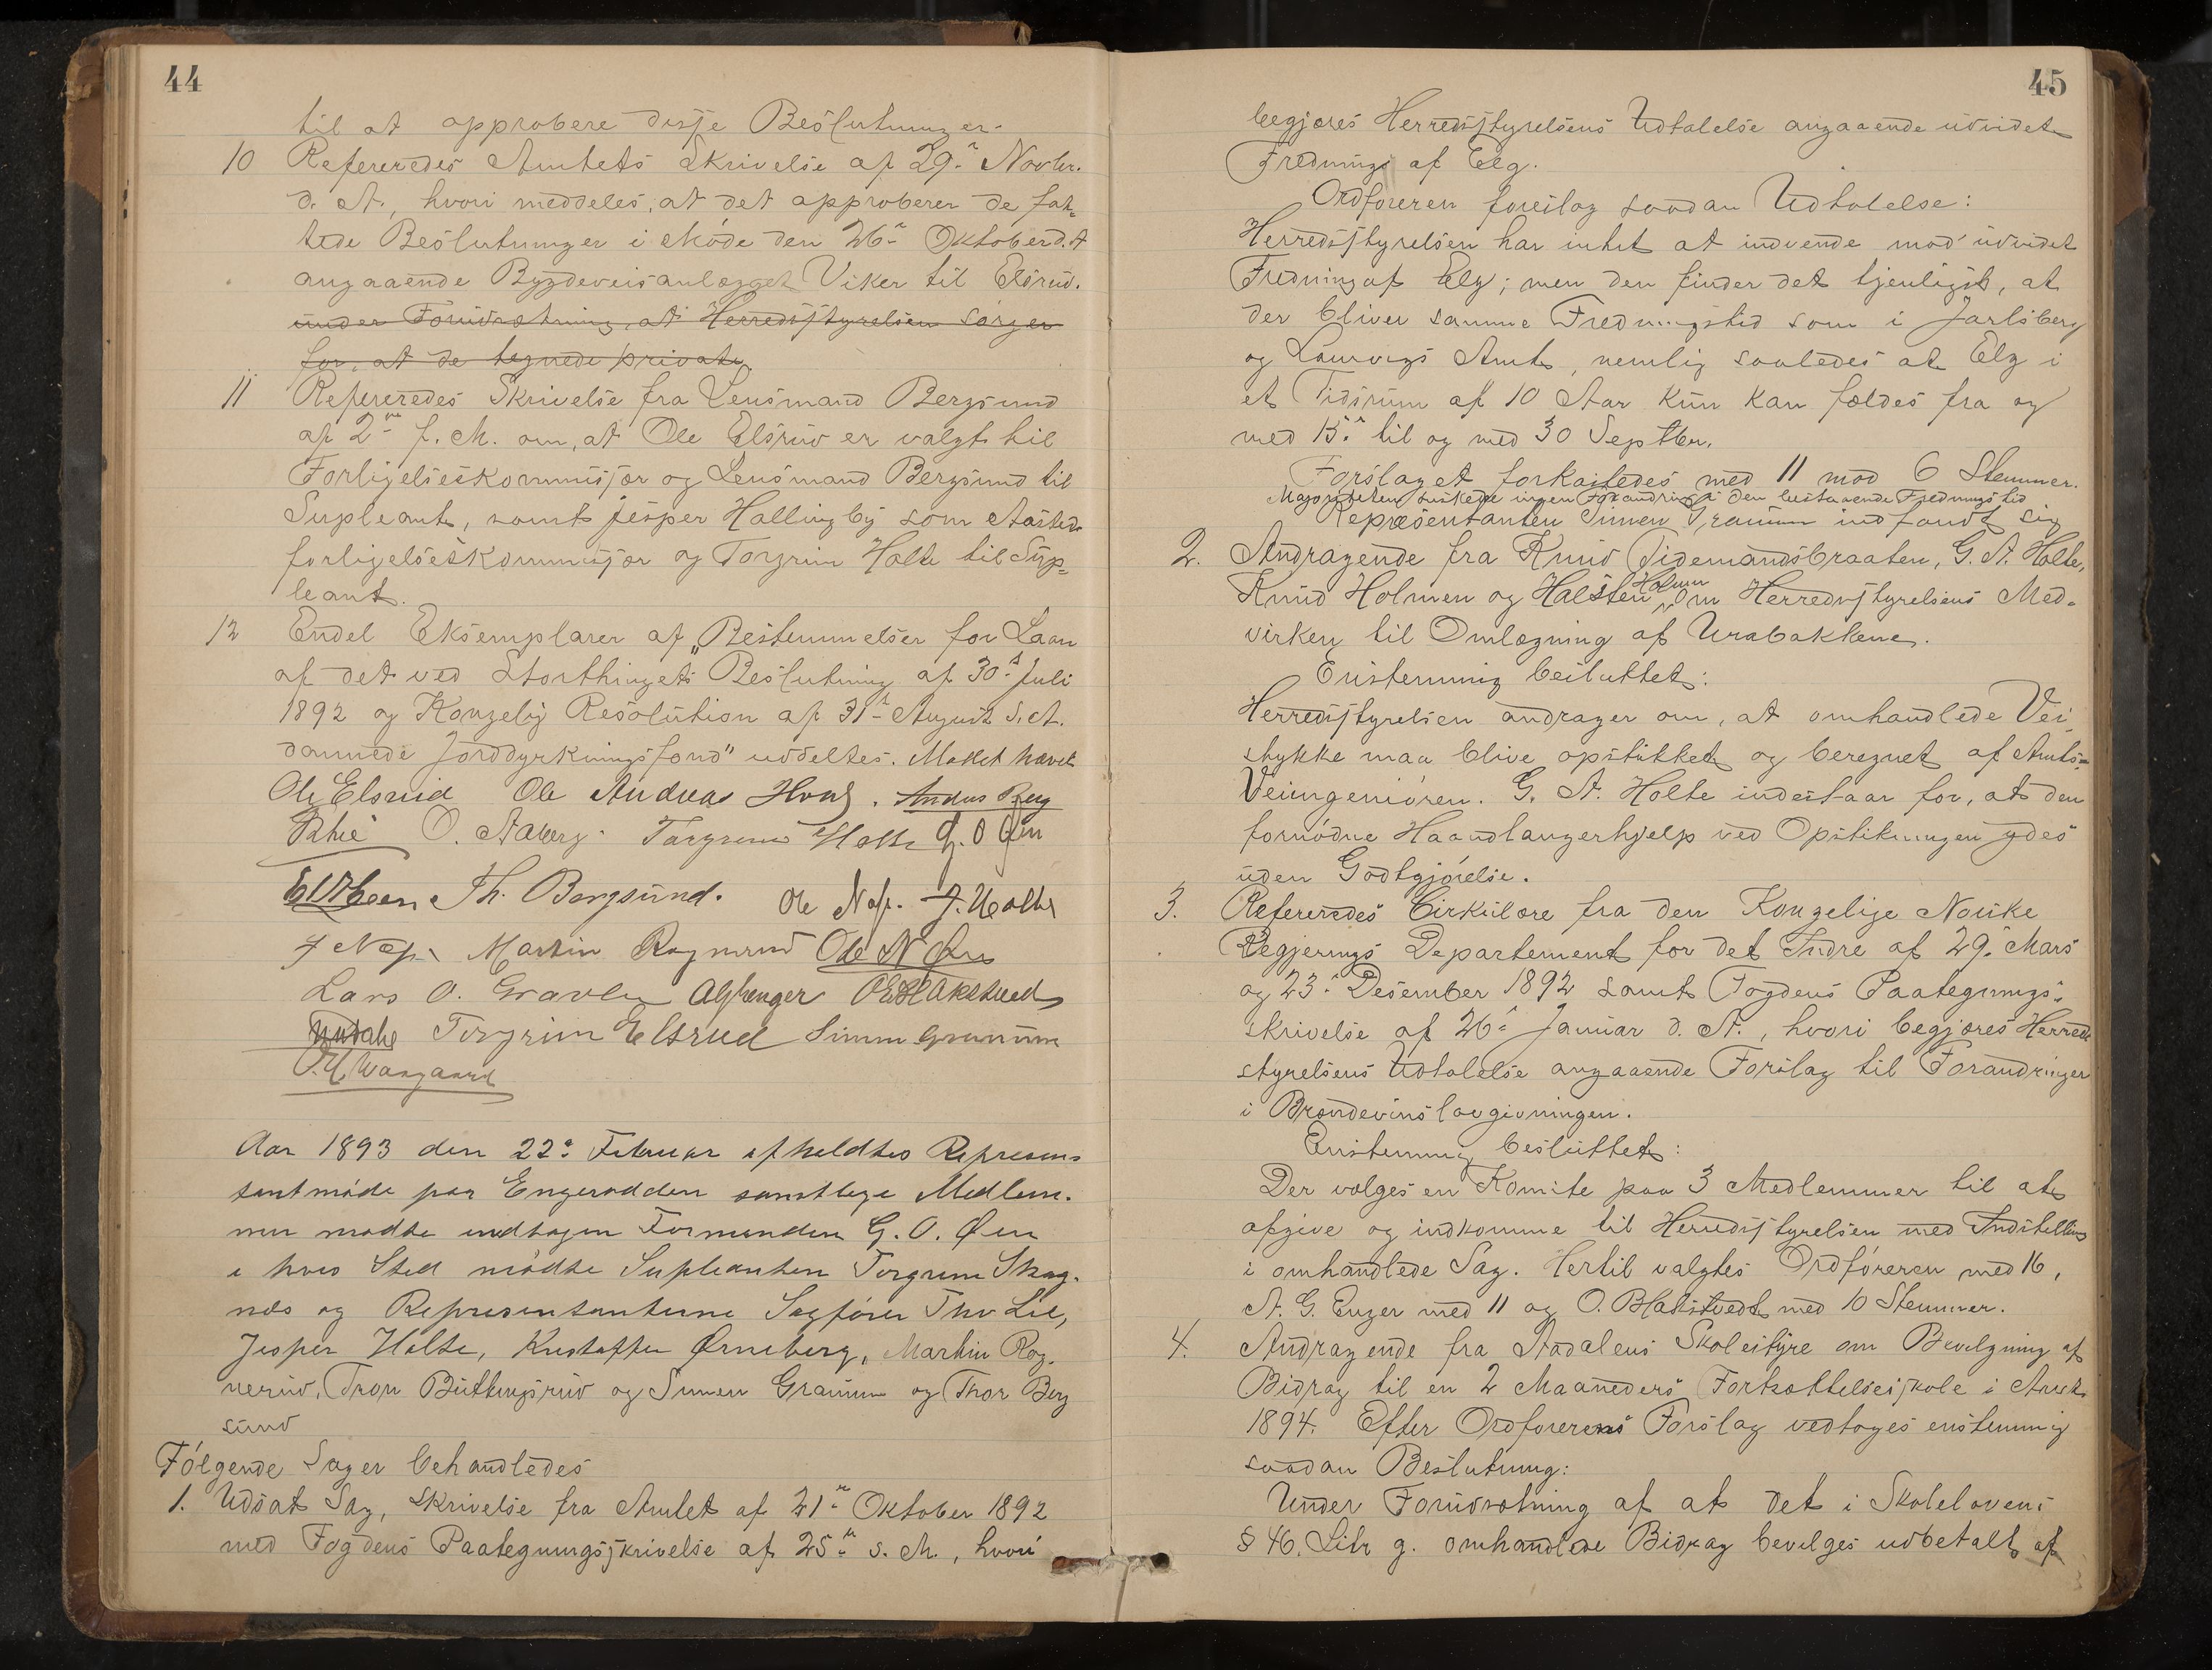 44
til at approbere disse Beslutninger.
10 Refereredes Amtets Skrivelse af 29de Novbr.
d. A., hvori meddeles, at det approberer de fat-
tede Beslutninger i Møde den 26de Oktober d. A
angaaende Bygdeveisanlægget Viker til Elsrud.
under Forudsætning, at Herredsstyrelsen sørger
for, at de tegnede private
11 Refereredes Skrivelse fra Lensmand Bergsund
af 2den f. M. om, at Ole Elsrud er valgt til
Forligelseskommissær og Lensmand Bergsund til
Supleant, samt Jesper Hallingby som Aasteds
forligelseskommissær og Torgrim Holte til Sup-
leant.
12 Endel Eksemplarer af „Bestemmelser for Laan
af det ved Storthingets Beslutning af 30te Juli
1892 og Kongelig Resolution af 31te August s. A.
dannede Jorddyrkningsfond" uddeltes. Mødet hævet
Ole Elsrud Ole Andreas Hval. Anders Berg
O. Aaberg. Torgrim Holte G. O Øen
Th. Bergsund. Ole Næs. J. Holte
J Næs Martin Rognerud Ole N Øen
Lars O. Gravlie AGEnger OBlakstvedt
Torgrim Elsrud Simen Granum
Aar 1893 den 22de Februar afholdtes Represen-
tantmøde paa Engerodden samtlige Medlem-
mer mødte undtagen Formanden G. O. Øen
i hvis Sted mødte Supleanten Torgrim Skag-
næs og Representanterne Sagfører Thv Lie,
Jesper Holte, Kristoffer Ørneberg, Martin Rog-
nerud, Tron Buttingsrud og Simen Granum og Thor Berg
sund
Følgende Sager behandledes
1. Udsat Sag, Skrivelse fra Amtet af 21de Oktober 1892
med Fogdens Paategningsskrivelse af 25de s. M., hvori
45
begjæres Herredsstyrelsens Udtalelse angaaende udvidet
Fredning af Elg.
Ordføreren foreslog saadan Udtalelse:
Herredsstyrelsen har intet at indvende mod udvidet
Fredning af Elg; men den finder det tjenligst, at
der bliver samme Fredningstid som i Jarlsberg
og Laurvigs Amt, nemlig saaledes at Elg i
et Tidsrum af 10 Aar kun kan fældes fra og
med 15de til og med 30 Septbr.
Forslaget forkastedes med 11 mod 6 Stemmer.
Majoriteten ønskede ingen Forandring i den bestaaende Fredningstid
Repræsentanten Simen Granum indfandt sig
2. Andragende fra Knud Tidemandsbraaten, G. A. Holte,
Knud Holmen og Halsten Holmen om Herredsstyrelsens Med-
virken til Omlægning af Urabakkene.
Enstemmig besluttet:
Herredsstyrelsen andrager om, at omhandlede Vei-
stykke maa blive opstukket og beregnet af Amts-
Veiingeniøren. G. A. Holte indestaar for, at den
fornødne Haandlangerhjelp ved Opstikningen ydes
uden Godtgjørelse.
3. Refereredes Cirkulære fra den Kongelige Norske
Regjerings Departement for det Indre af 29de Mars
og 23de Desember 1892 samt Fogdens Paategnings-
skrivelse af 26de Januar d. A., hvori begjæres Herreds
styrelsens Udtalelse angaaende Forslag til Forandringer
i Brændevinslovgivningen.
Enstemmig besluttet:
Der vælges en Komite paa 3 Medlemmer til at
afgive og indkomme til Herredsstyrelsen med Indstilling
i omhandlede Sag. Hertil valgtes Ordføreren med 16,
A. G. Enger med 11 og O. Blakstvedt med 10 Stemmer.
4. Andragende fra Aadalens Skolestyre om Bevilgning af
Bidrag til en 2 Maaneders Fortsættelsesskole i Aaret
1894. Efter Ordførerens Forslag vedtoges enstemmig
saadan Beslutning:
Under Forudsætning af at det i Skolelovens
§ 46. Litr g. omhandlede Bidrag bevilges udbetalt af